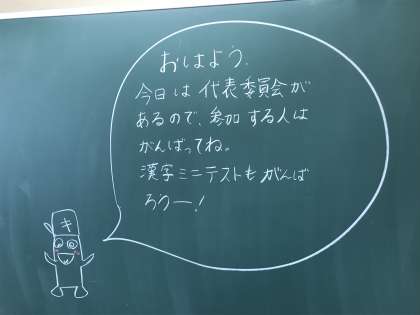 おはよう.
今日は代表委員会が
あるので、参加する人は
がんばってね。
漢字ミニテストもがんば
ろうー!
キ